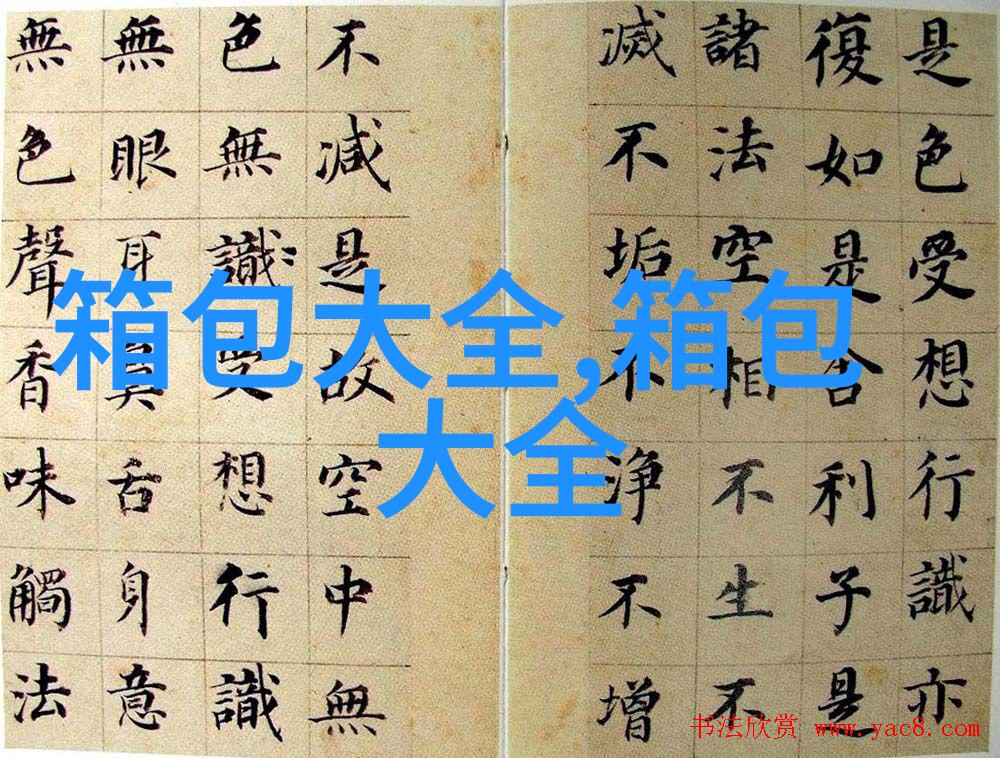 是色受想行識亦
復如是舍利子是
諸法空相不生不
滅不垢不淨不增
不減是故空中無
色無識受想行識
無眼耳鼻舌身意
無色聲香味觸法
箱包大全,箱包
大全
书法欣赏 www.yac8.com